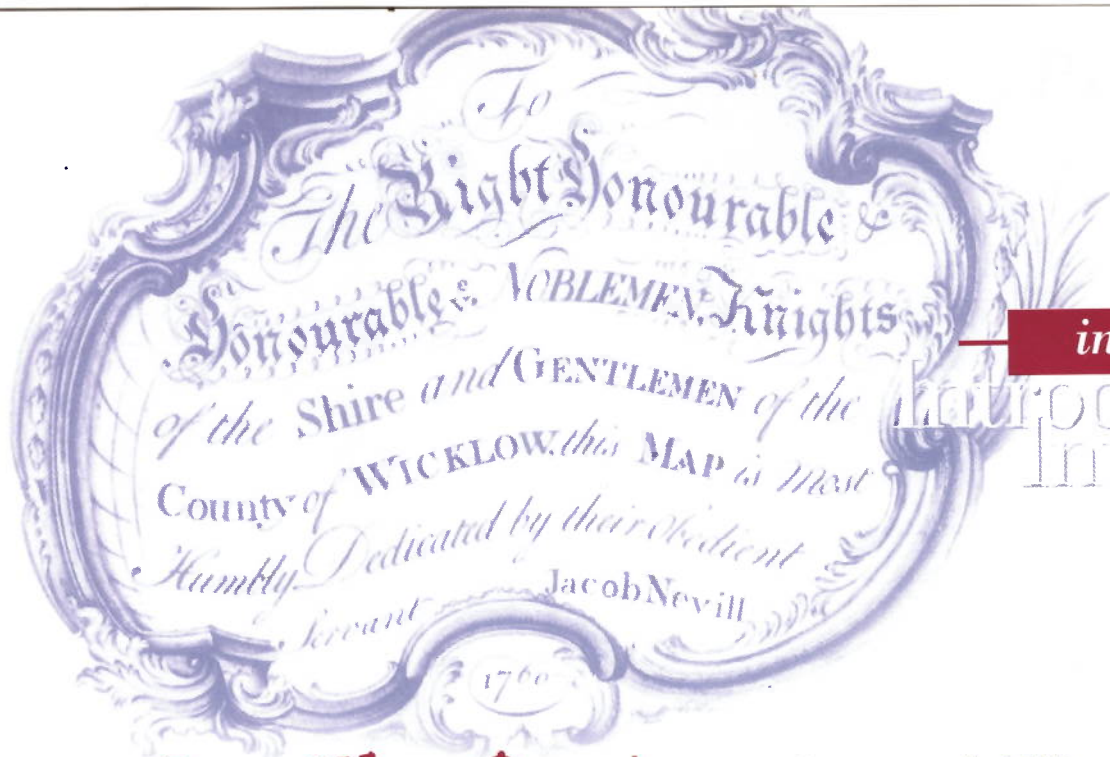 To
The Right Honourable &
Honourable NOBLEMEN, Knights
of the Shire and GENTLEMEN of the
County of WICKLOW, this MAP is Most
Humbly Dedicated by their Obedient
Servant Jacob Nevill
1760
in
Introd
In